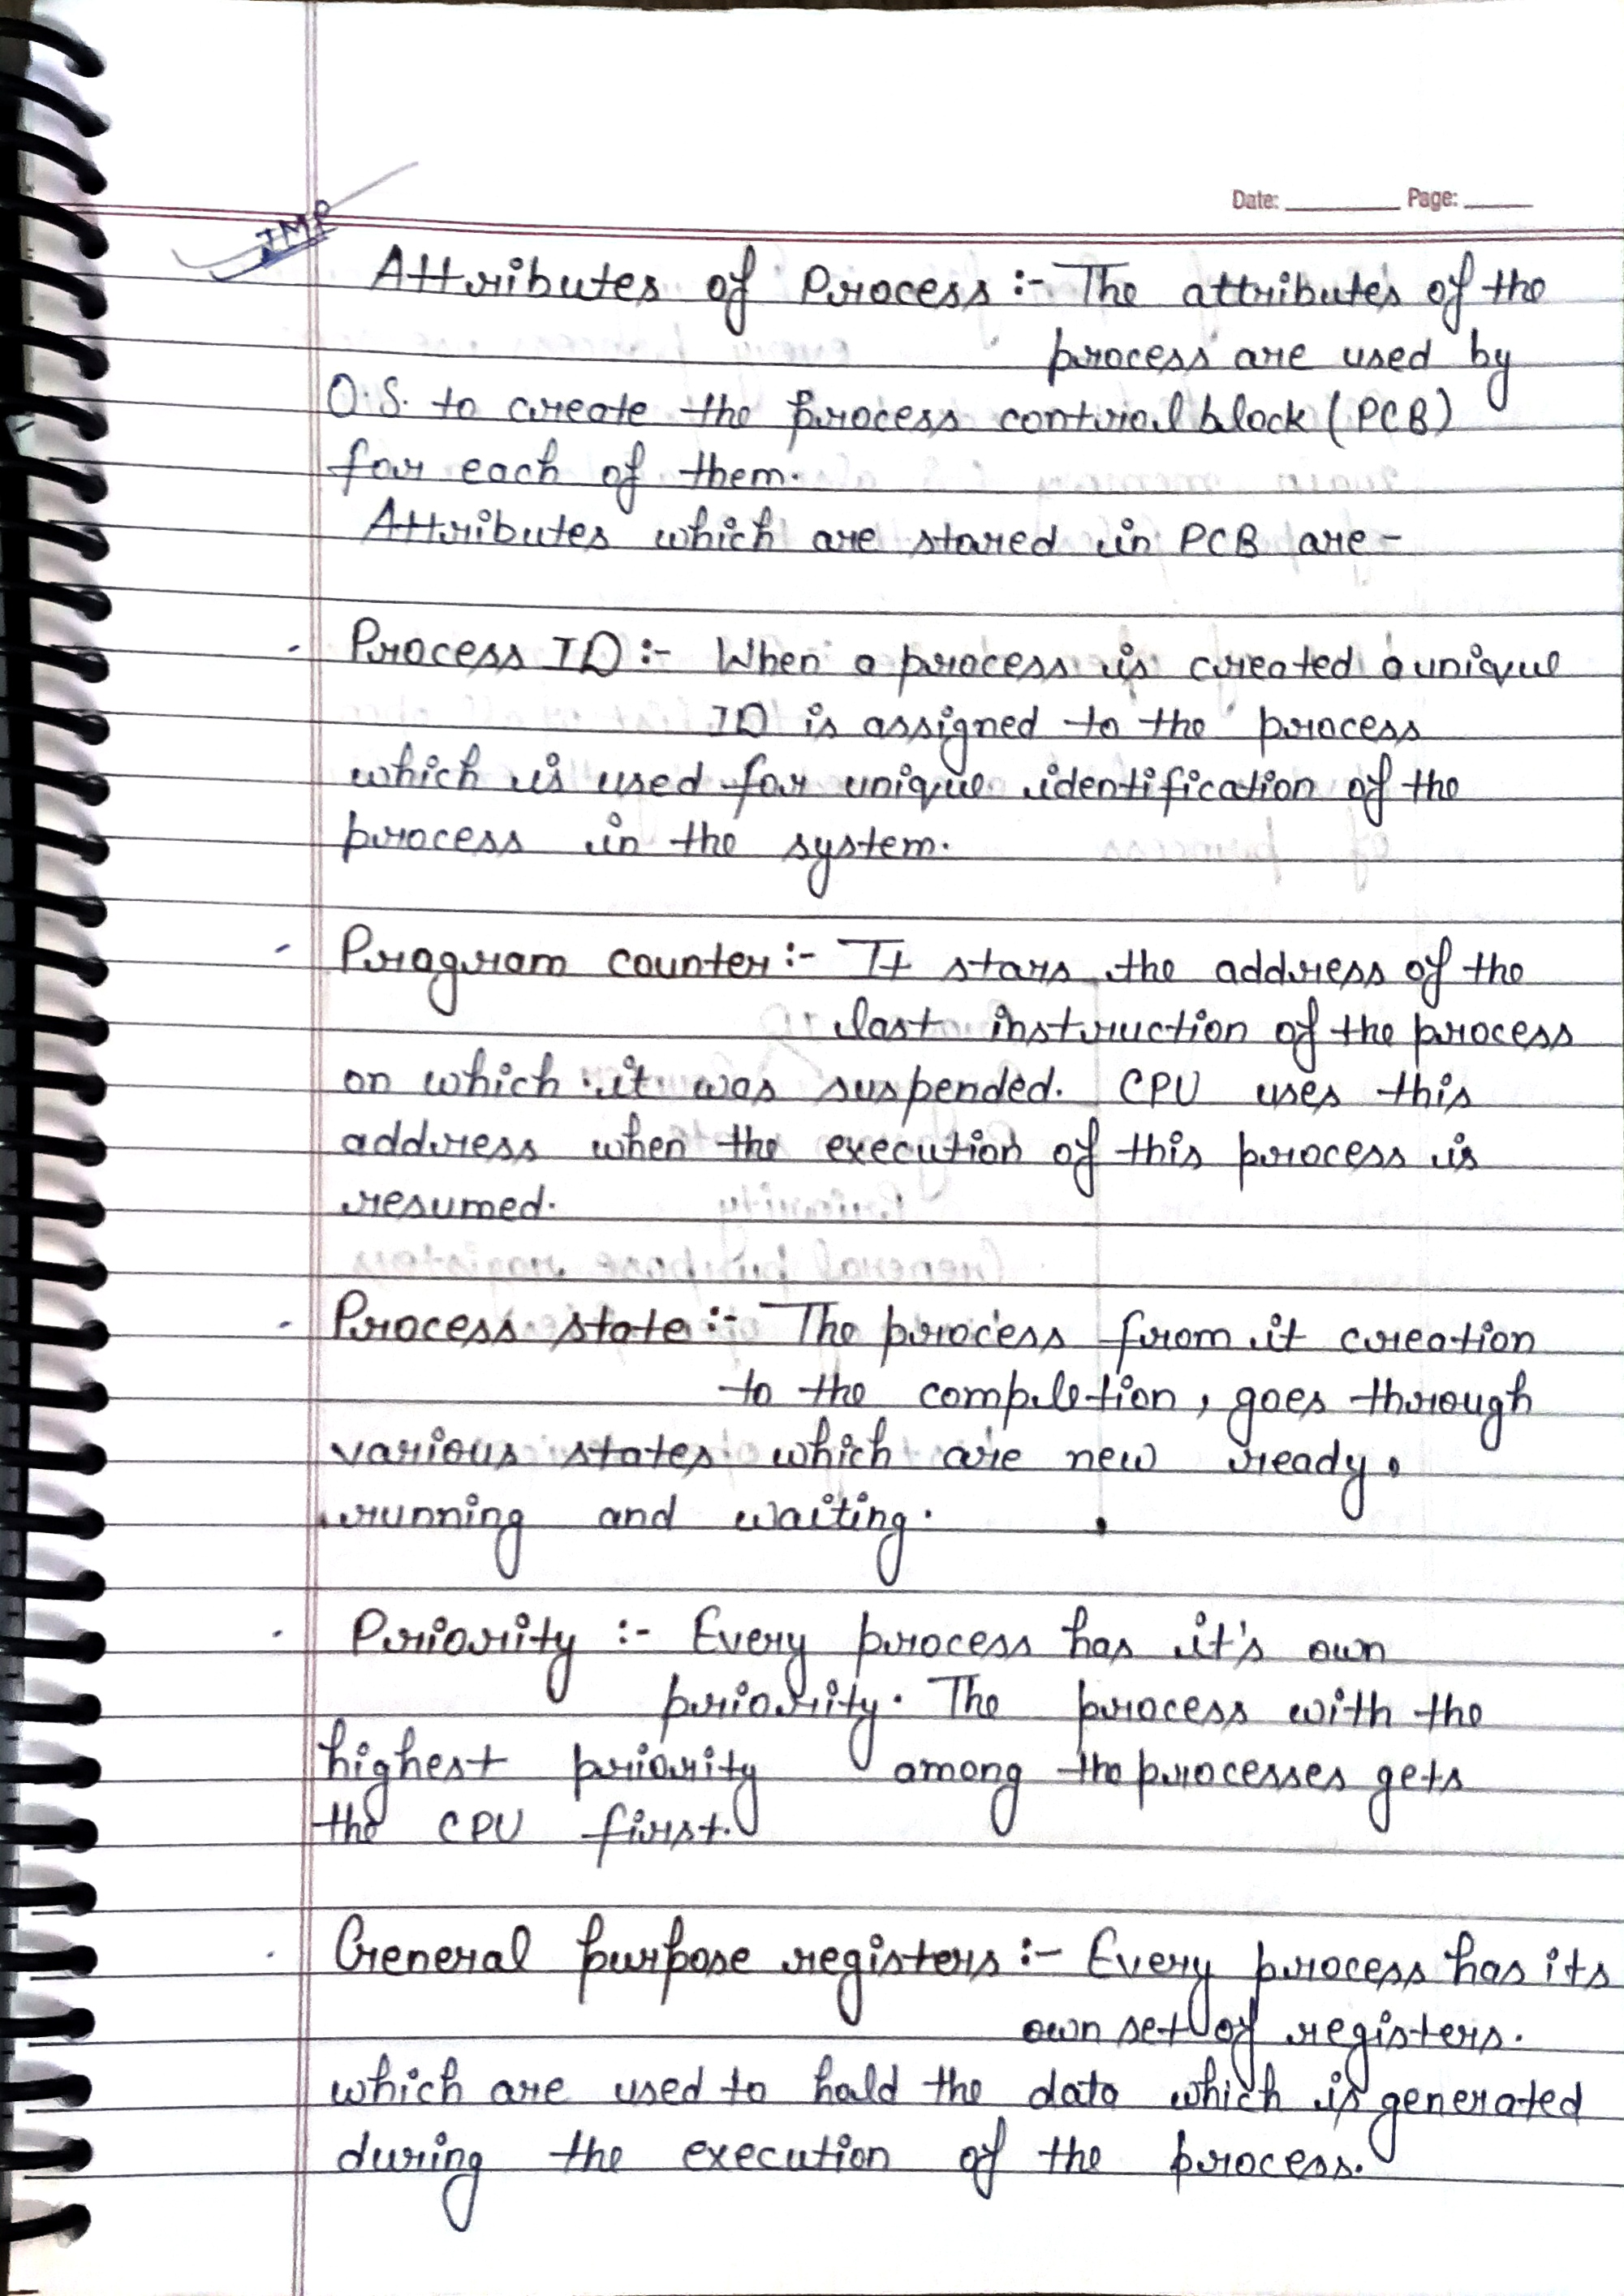 Date: Page:
IMP
Attributes of Process :- The attributes of the
process are used by
O.S. to create the process control block (PCB)
for each of them.
Attributes which are stored in PCB are -
- Process ID :- When a process is created a unique
ID is assigned to the process
which is used for unique identification of the
process in the system.
- Program counter :- It stors the address of the
last instruction of the process
on which it was suspended. CPU uses this
address when the execution of this process is
resumed.
- Process state :- The process from it creation
to the completion, goes through
various states which are new ready,
running and waiting.
- Priority :- Every process has it's own
priority. The process with the
highest priority among the processes gets
the CPU first.
. General purpose registers :- Every process has its
own set of registers.
which are used to hold the data which is generated
during the execution of the process.